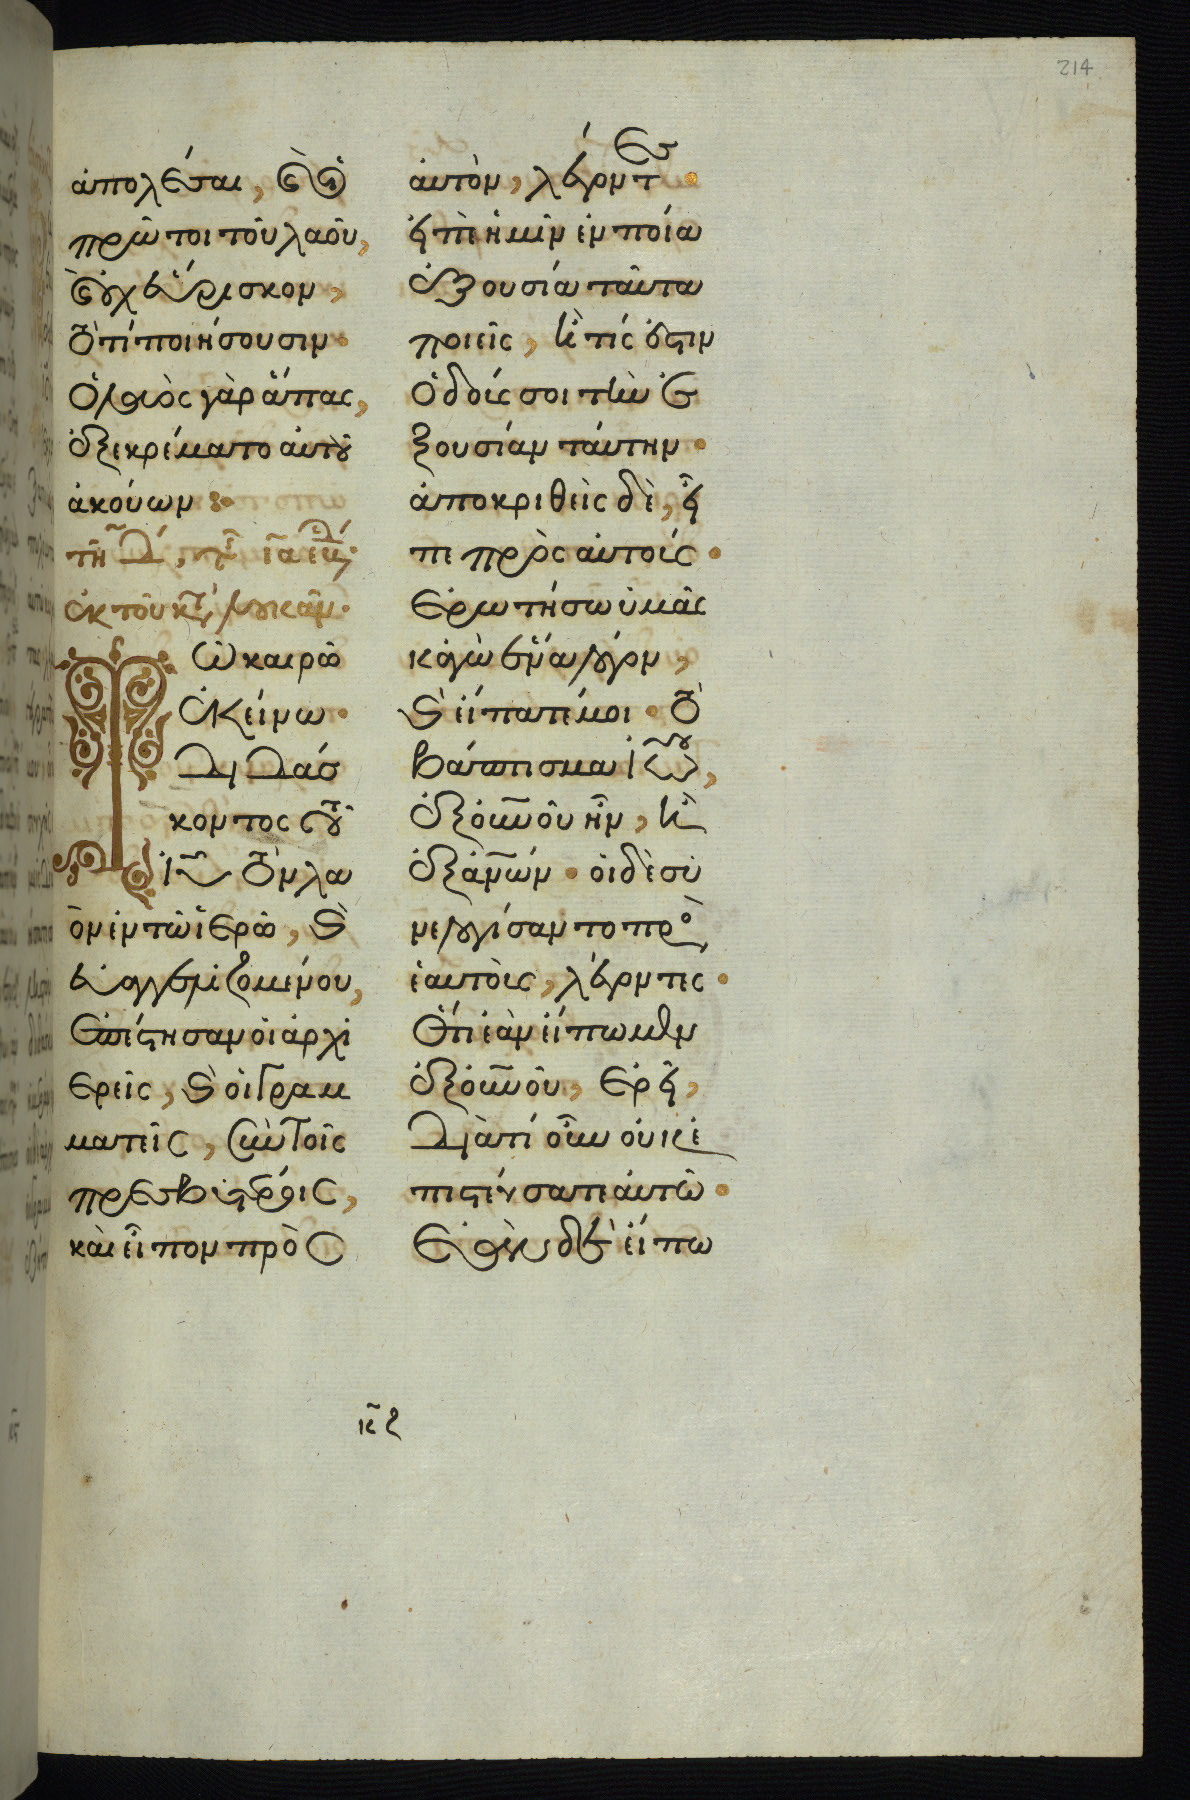 214
ἀπολέσαι, καὶ οἱ
πρῶτοι τοῦ λαοῦ,
καὶ οὐχ εὕρισκον,
τὸ τί ποιήσουσιν·
ὁ λαὸς γὰρ ἅπας,
ἐξεκρέματο αὐτοῦ
ἀκούων :·
τῇ δ,
ἐκ τοῦ κατὰ λουκᾶν·
Τῶ καιρῶ
ἐκείνω·
διδάσ
κοντος τοῦ
ιῦ τὸν λα
ὸν ἐν τῶ ἱερῶ, καὶ
εὐαγγελιζομένου,
ἐπέστησαν οἱ ἀρχι
ερεῖς, καὶ οἱ γραμ
ματεῖς, σὺν τοῖς
πρεσβυτέροις,
καὶ εἶπον πρὸς
αὐτὸν, λέγοντες·
εἰπὲ ἡμῖν ἐν ποία
ἐξουσία ταῦτα
ποιεῖς, ἢ τίς ἐστιν
ὁ δούς σοι τὴν ἐ
ξουσίαν ταύτην·
ἀποκριθεὶς δὲ, εἶ
πε πρὸς αὐτούς·
ἐρωτήσω ὑμᾶς
κἀγὼ ἕνα λόγον,
καὶ εἴπατέ μοι· τὸ
βάπτισμα ἰωάννου,
ἐξ οὐνοῦ ἦν, ἢ
ἐξ ἀνων· οἱ δὲ συ
νελογίσαντο πρὸς
ἑαυτοὺς, λέγοντες·
ὅτι ἐὰν εἴπωμεν
ἐξ οὐνοῦ, ἐρεῖ,
διὰ τί οὖν οὐκ ἐ
πιστεύσατε αὐτῶ·
ἐὰν δὲ εἴπω
κς